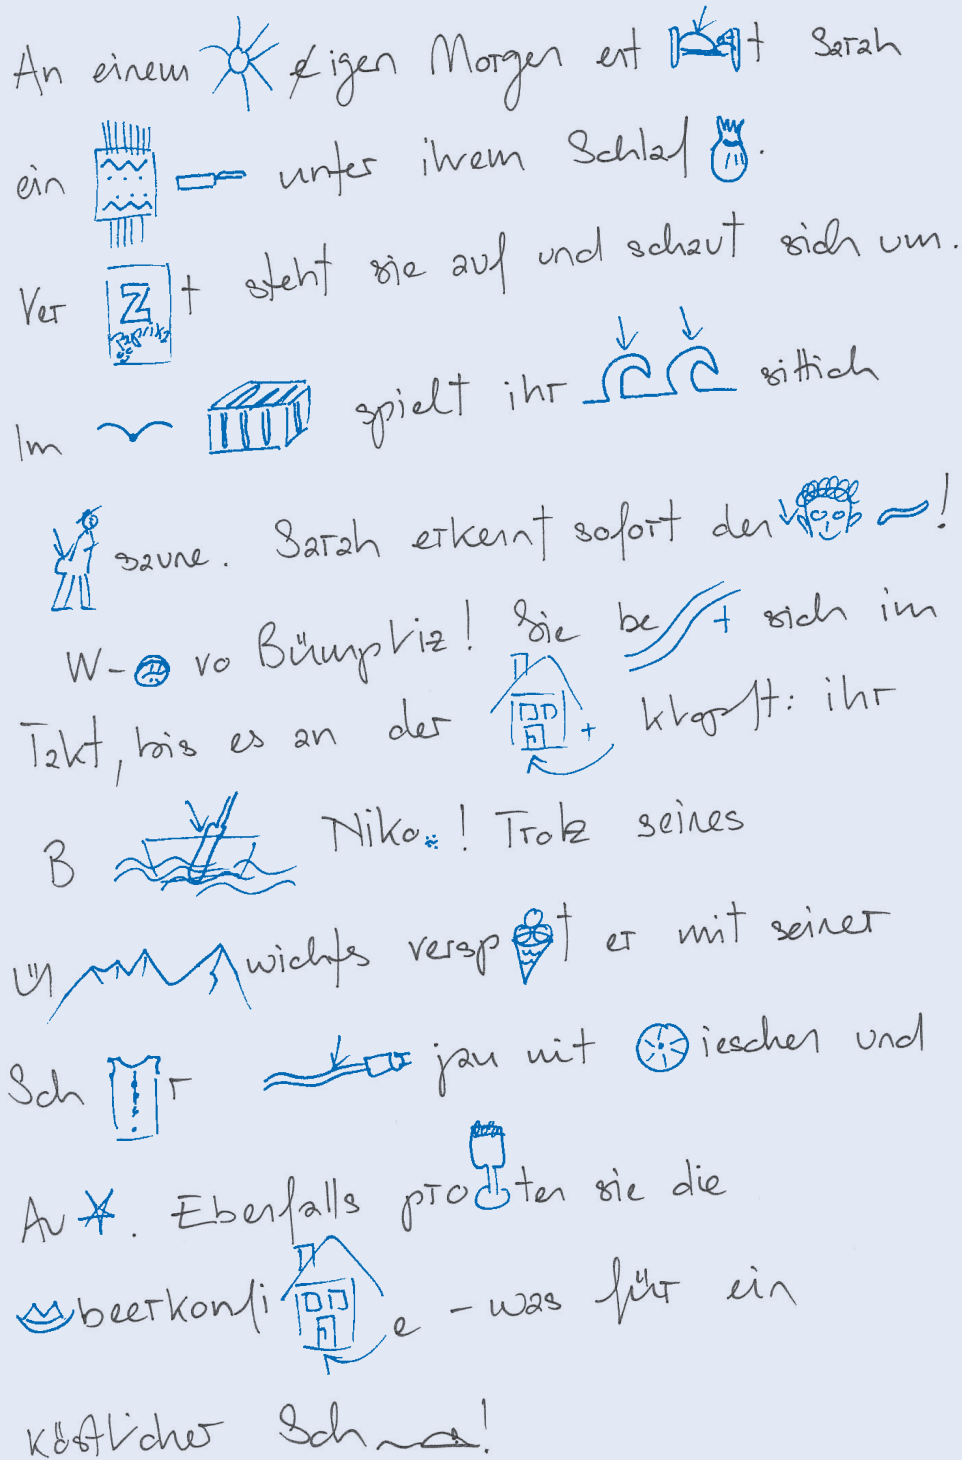 An einem ɇigen Morgen ert t Sarah
ein unter ihrem Schlaf .
Ver Z Paprika t steht sie auf und schaut sich um.
Im spielt ihr sittich
saune. Sarah erkennt sofort den !
W- vo Bümpliz! Sie be t sich im
Takt, bis es an der + klopft: ihr
B Niko ! Trotz seines
Un wichts versp t er mit seiner
Sch r jau mit ieschen und
Au . Ebenfalls pro ten sie die
beerkonfi e - was für ein
köstlicher Sch !